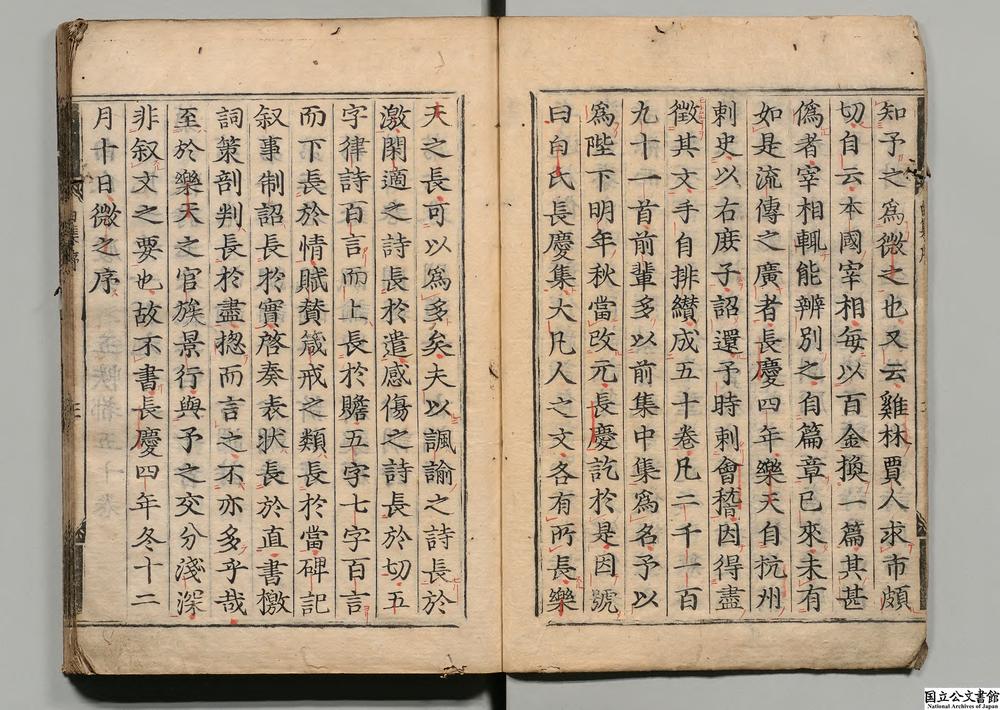 知予之爲微之也又云雞林賈人求市頗
切自云本國宰相每以百金換一篇其甚
僞者宰相輒能辨別之自篇章已來未有
如是流傳之廣者長慶四年樂天自杭州
刺史以右庶子詔還予時刺會稽因得盡
徵其文手自排纘成五十卷凡二千一百
九十一首前輩多以前集中集爲名予以
爲陛下明年秋當改元長慶訖於是因號
曰白氏長慶集大凡人之文各有所長樂
天之長可以爲多矣夫以諷諭之詩長於
激閑適之詩長於遣感傷之詩長於切五
字律詩百言而上長於贍五字七字百言
而下長於情賦賛箴戒之類長於當碑記
叙事制詔長於實啓奏表狀長於直書檄
詞策剖判長於盡揔而言之不亦多乎哉
至於樂天之官族景行與予之交分淺深
非叙文之要也故不書長慶四年冬十二
月十日微之序
国立公文書館
National Archives of Japan